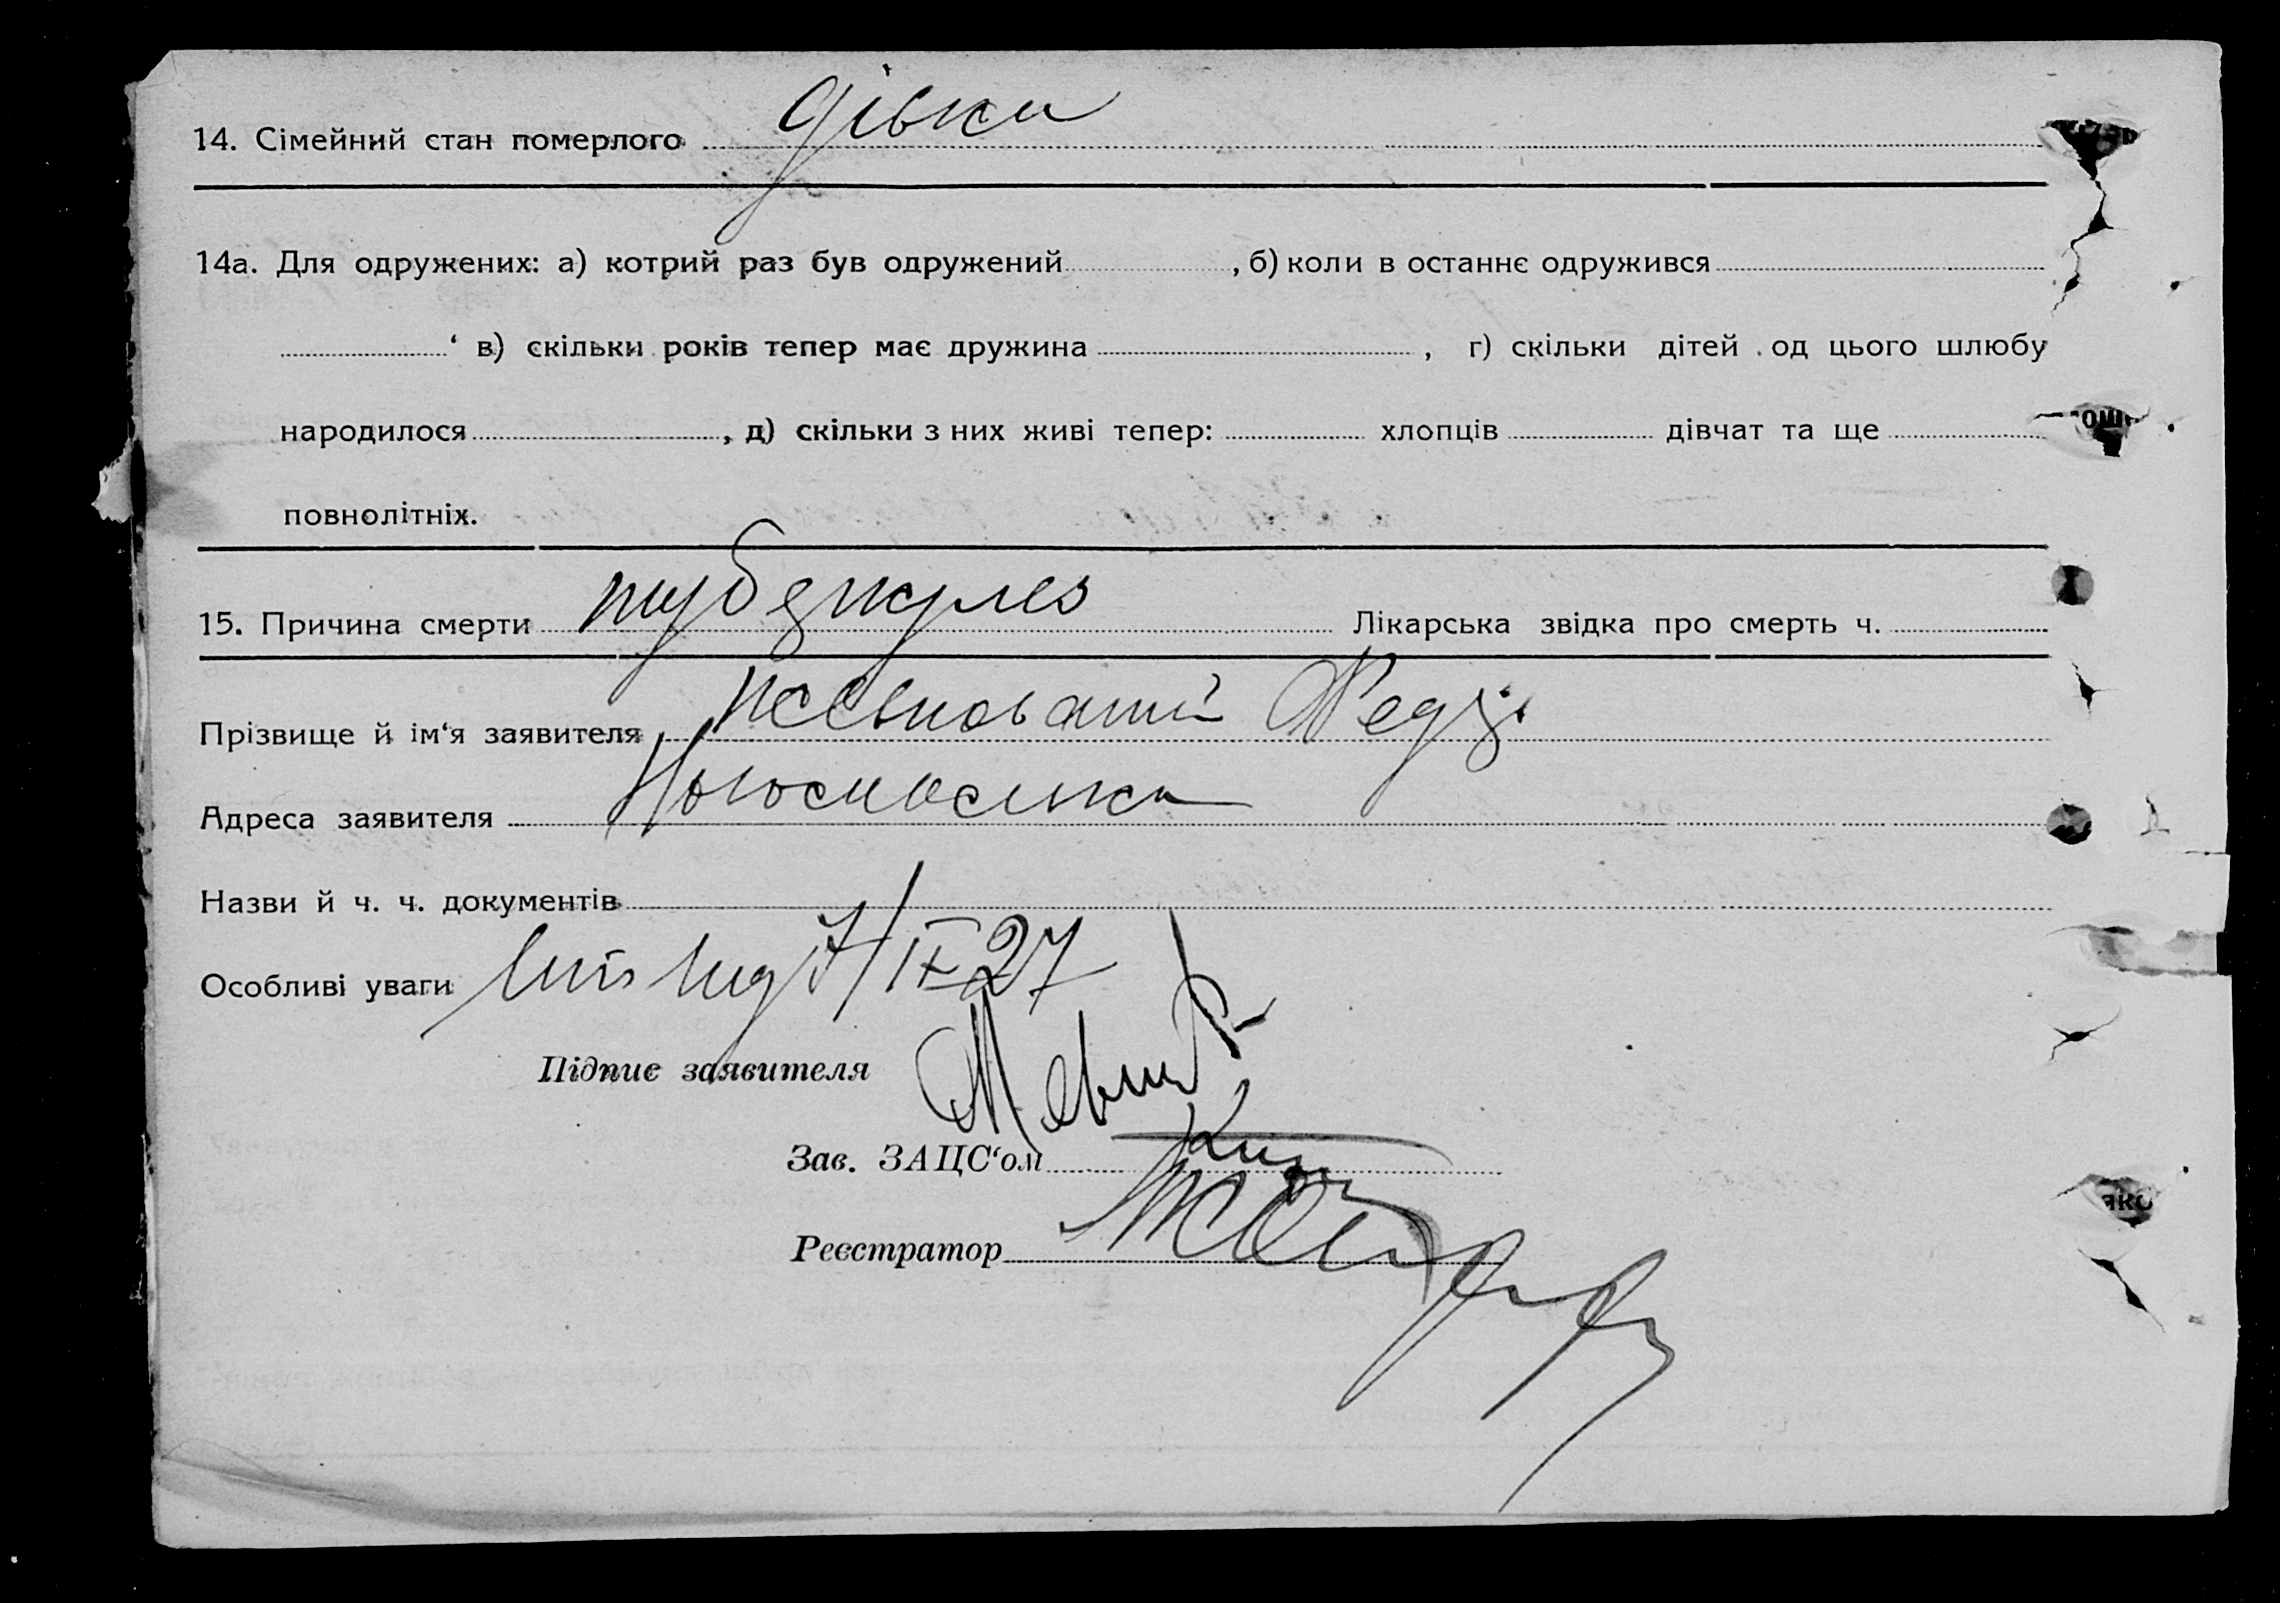 14. Сімейний стан померлого дівка
14а. Для одружених: а) котрий раз був одружений , б) коли в останнє одружився
‘ в) скільки років тепер має дружина , г) скільки дітей од цього шлюбу
народилося , д) скільки з них живі тепер: хлопців дівчат та ще
повнолітніх.
15. Причина смерти туберкулез Лікарська звідка про смерть ч.
Прізвище й ім‘я заявителя
Адреса заявителя
Назви й ч. ч. документів
Особливі уваги 7/IX 27
Підпис заявителя
Зав. ЗАЦС‘ом
Реєстратор